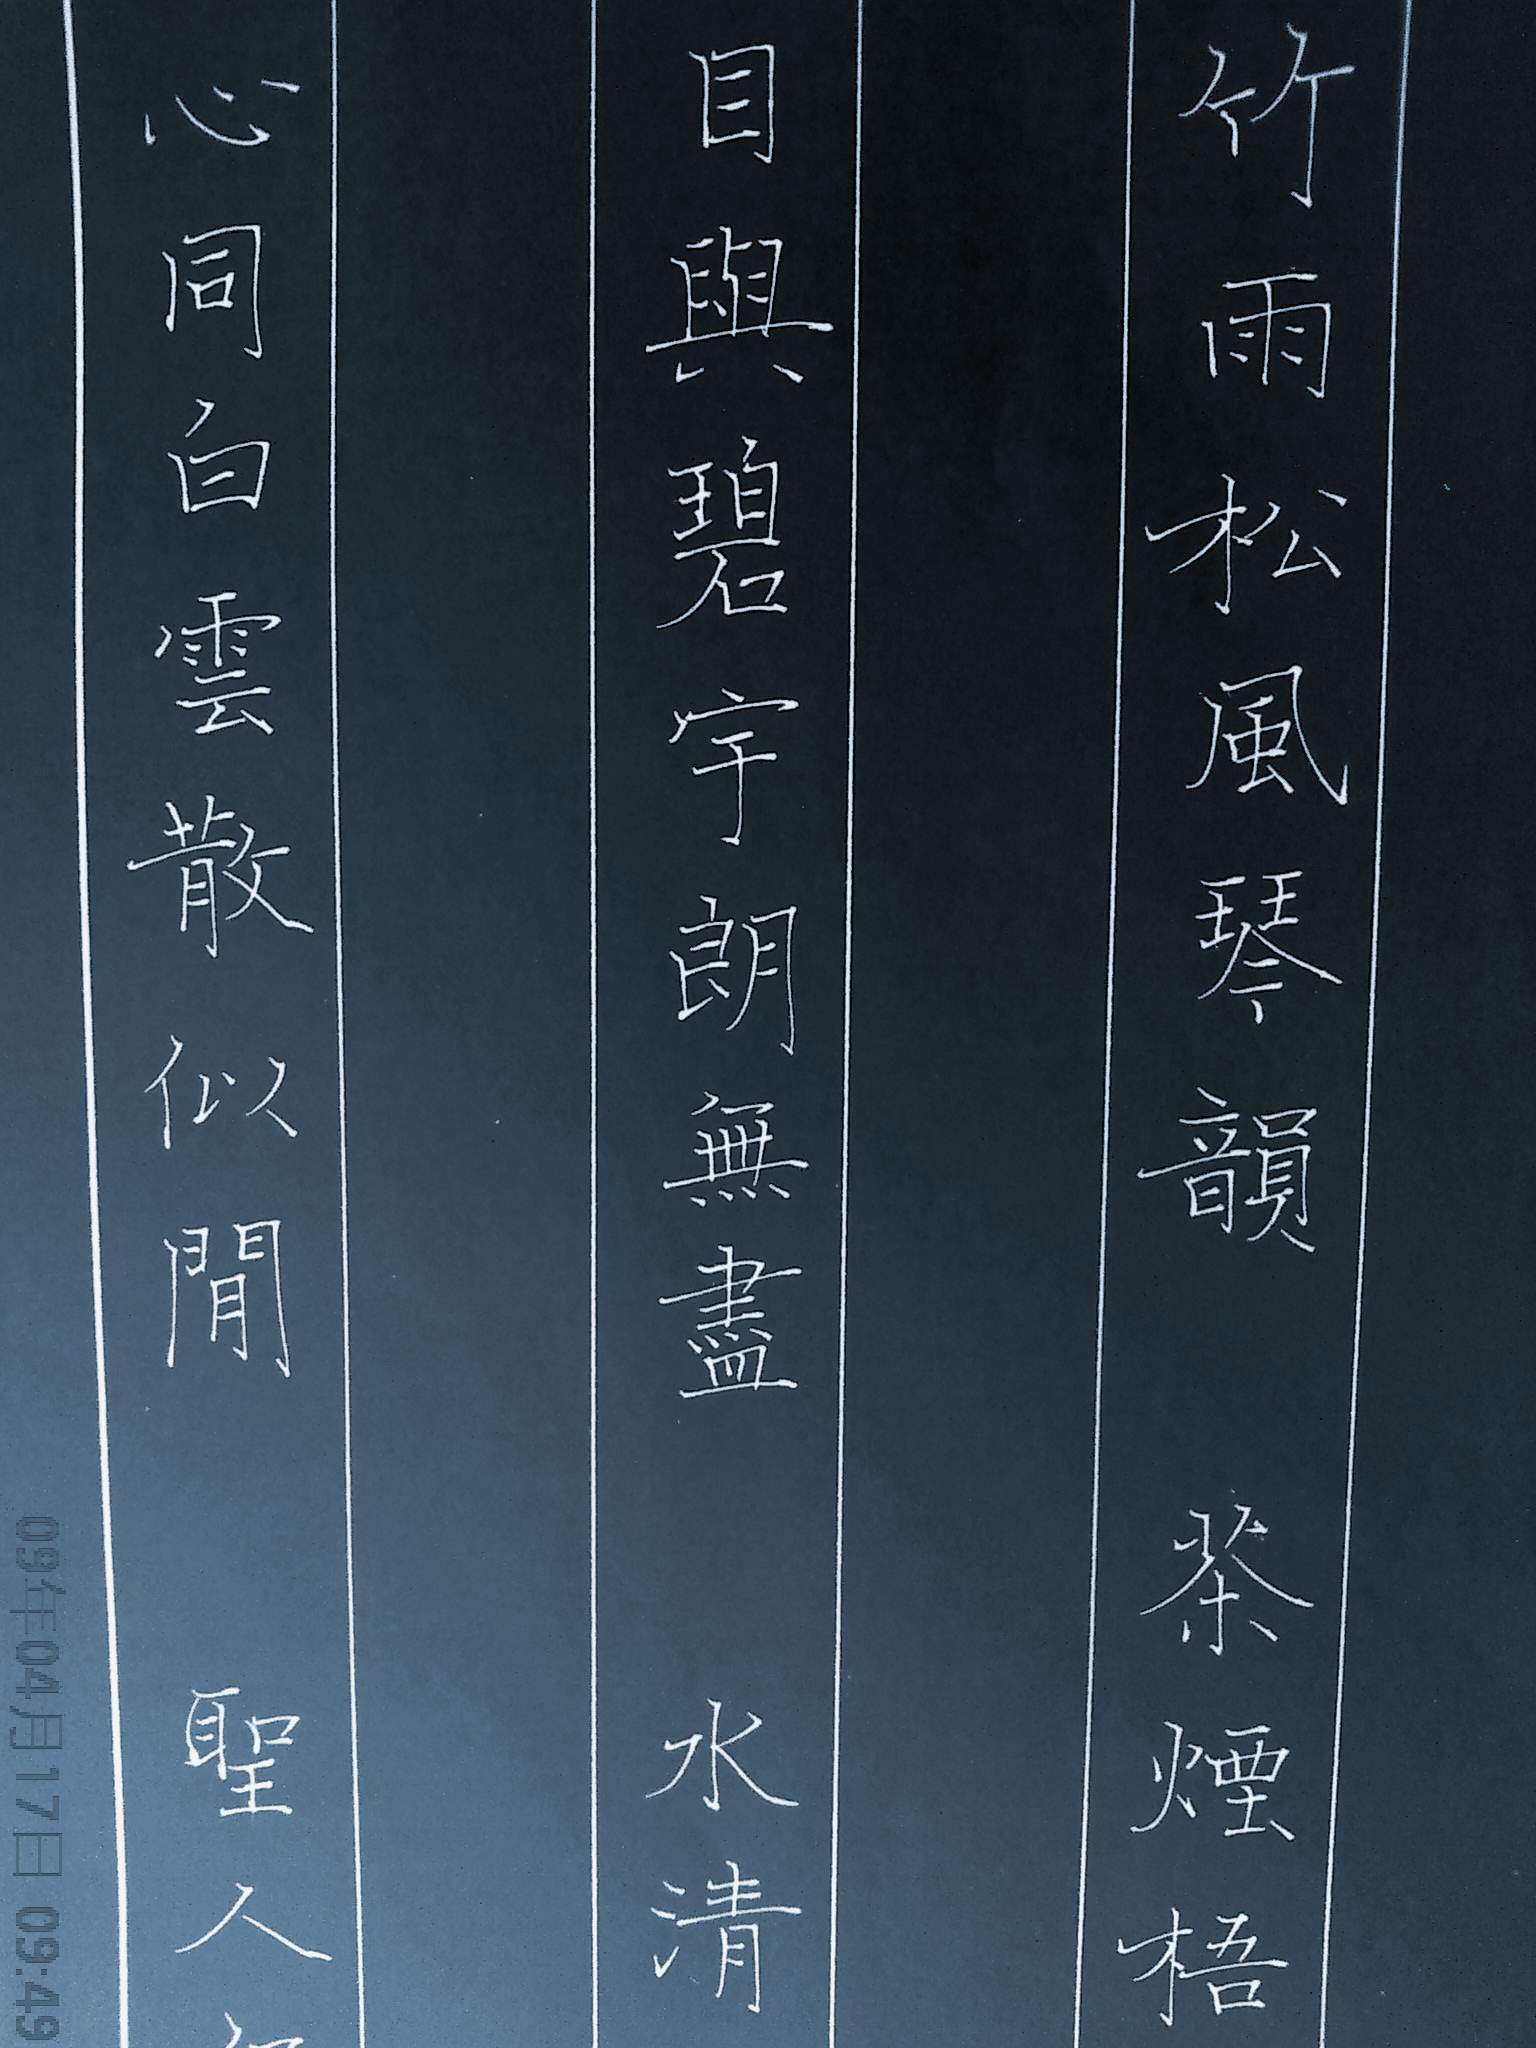 竹雨松風琴韻　茶煙梧
目與碧宇朗無盡　水清
心同白雲散似閒　聖人
09年04月17日 09:49